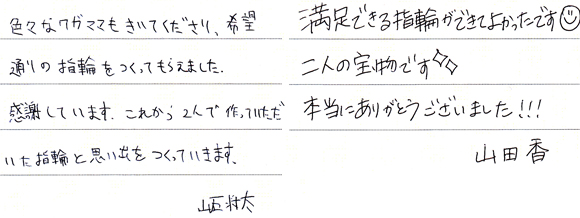 色々なワガママもきいてくださり、希望
通りの指輪をつくってもらえました.
感謝しています. これから2人で作っていただ
いた指輪と思い出をつくっていきます.
満足できる指輪ができてよかったです☺
二人の宝物です✧✧
本当にありがとうございました!!!
山田香